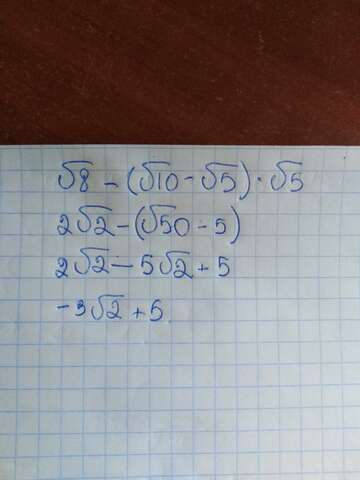 √8 - (√10 - √5) · √5
2√2 - (√50 - 5)
2√2 - 5√2 + 5
-3√2 + 5